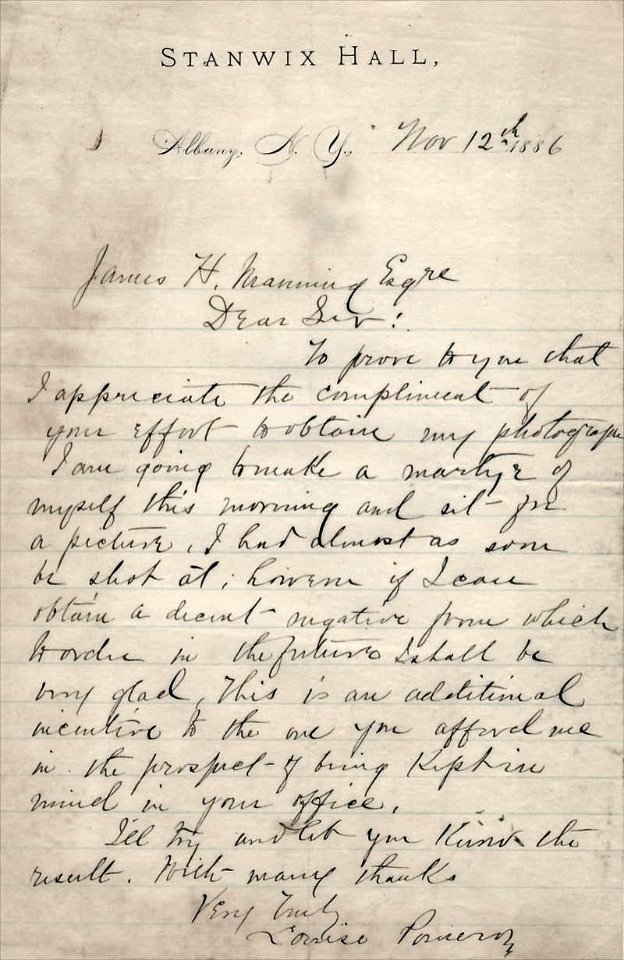 STANWIX HALL,
Albany, N. Y., Nov 12th 1886
James H. Manning Esqre
Dear Sir!
To prove to you that
I appreciate the compliment of
your effort to obtain my photograph
I am going to make a martyr of
myself this morning and sit for
a picture, I had almost as soon
be shot at; however if I can
obtain a decent negative from which
to order in the future I shall be
very glad, This is an additional
incentive to the one you afford me
in the prospect of being Kept in
mind in your office,
I'll try and let you Know the
result. With many thanks
Very Truly
Louise Pomeroy